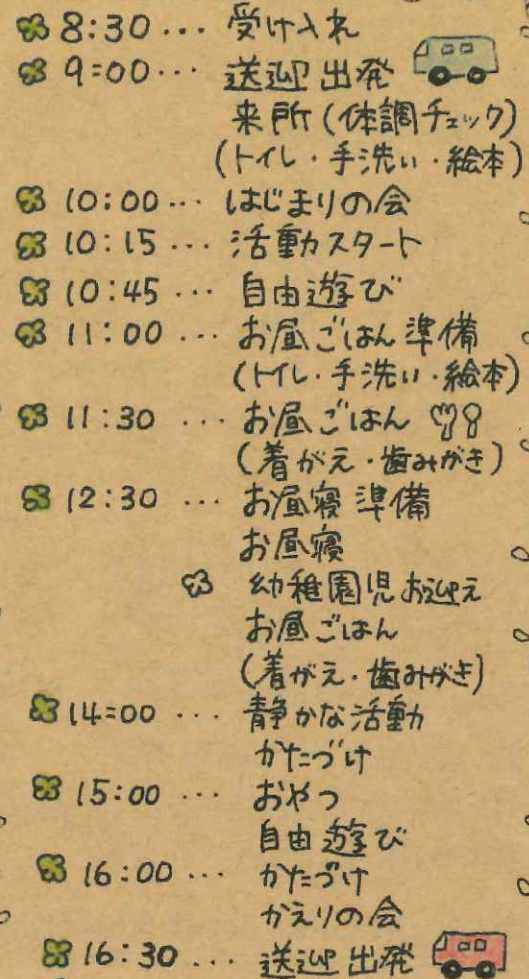 8:30… 受け入れ
9:00… 送迎出発
来所(体調チェック)
(トイレ・手洗い・絵本)
10:00… はじまりの会
10:15… 活動スタート
10:45… 自由遊び
11:00… お昼ごはん準備
(トイレ・手洗い・絵本)
11:30… お昼ごはん
(着がえ・歯みがき)
12:30… お昼寝準備
お昼寝
幼稚園児お迎え
お昼ごはん
(着がえ・歯みがき)
14:00… 静かな活動
かたづけ
15:00… おやつ
自由遊び
16:00… かたづけ
かえりの会
16:30… 送迎出発